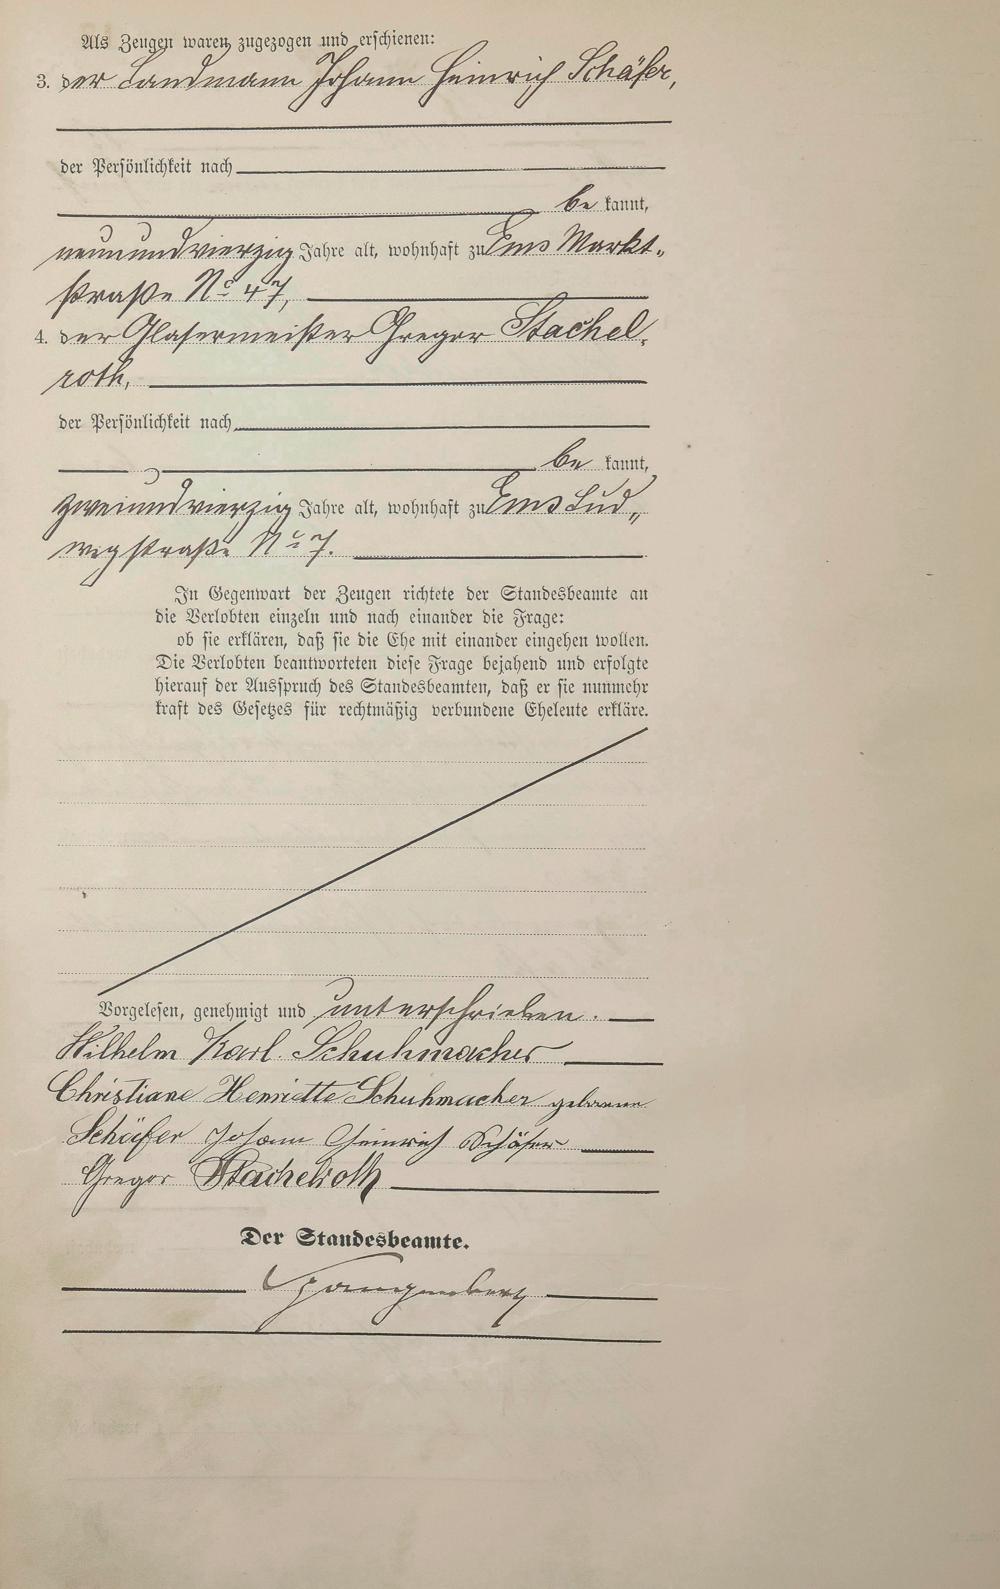 Als Zeugen waren zugezogen und erschienen:
3. der Landmann Johann Heinrich Schäfer,
der Persönlichkeit nach
be kannt,
neunundvierzig Jahre alt, wohnhaft zu Ems Markt-
straße No 47,
4. der Glasermeister Gregor Stachel-
roth,
der Persönlichkeit nach
be kannt,
zweiundvierzig Jahre alt, wohnhaft zu Ems Lud-
wigstraße No 7.
In Gegenwart der Zeugen richtete der Standesbeamte an
die Verlobten einzeln und nach einander die Frage:
ob sie erklären, daß sie die Ehe mit einander eingehen wollen.
Die Verlobten beantworteten diese Frage bejahend und erfolgte
hierauf der Ausspruch des Standesbeamten, daß er sie nunmehr
kraft des Gesetzes für rechtmäßig verbundene Eheleute erkläre.
Vorgelesen, genehmigt und unterschrieben.
Wilhelm Karl Schuhmacher
Christiane Henriette Schuhmacher geborene
Schäfer Johann Heinrich Schäfer
Gregor Stachelroth
Der Standesbeamte.
Spangenberg